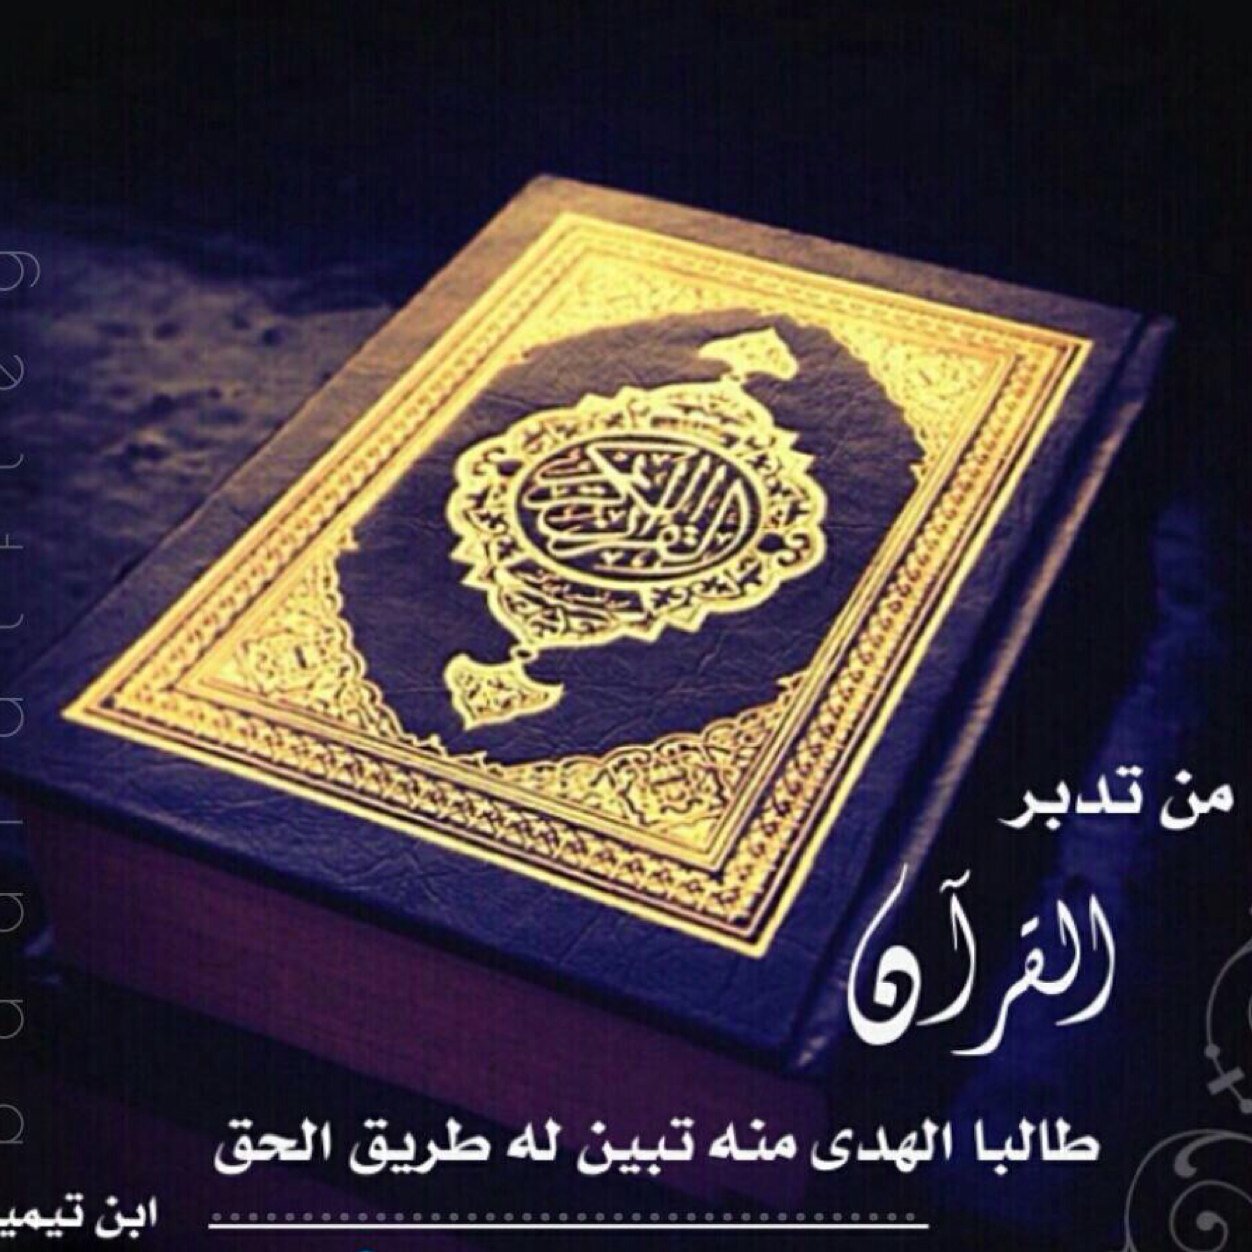 من تدبر
القرآن
طالبا الهدى منه تبين له طريق الحق
ابن تيمي
القرآن الكريم